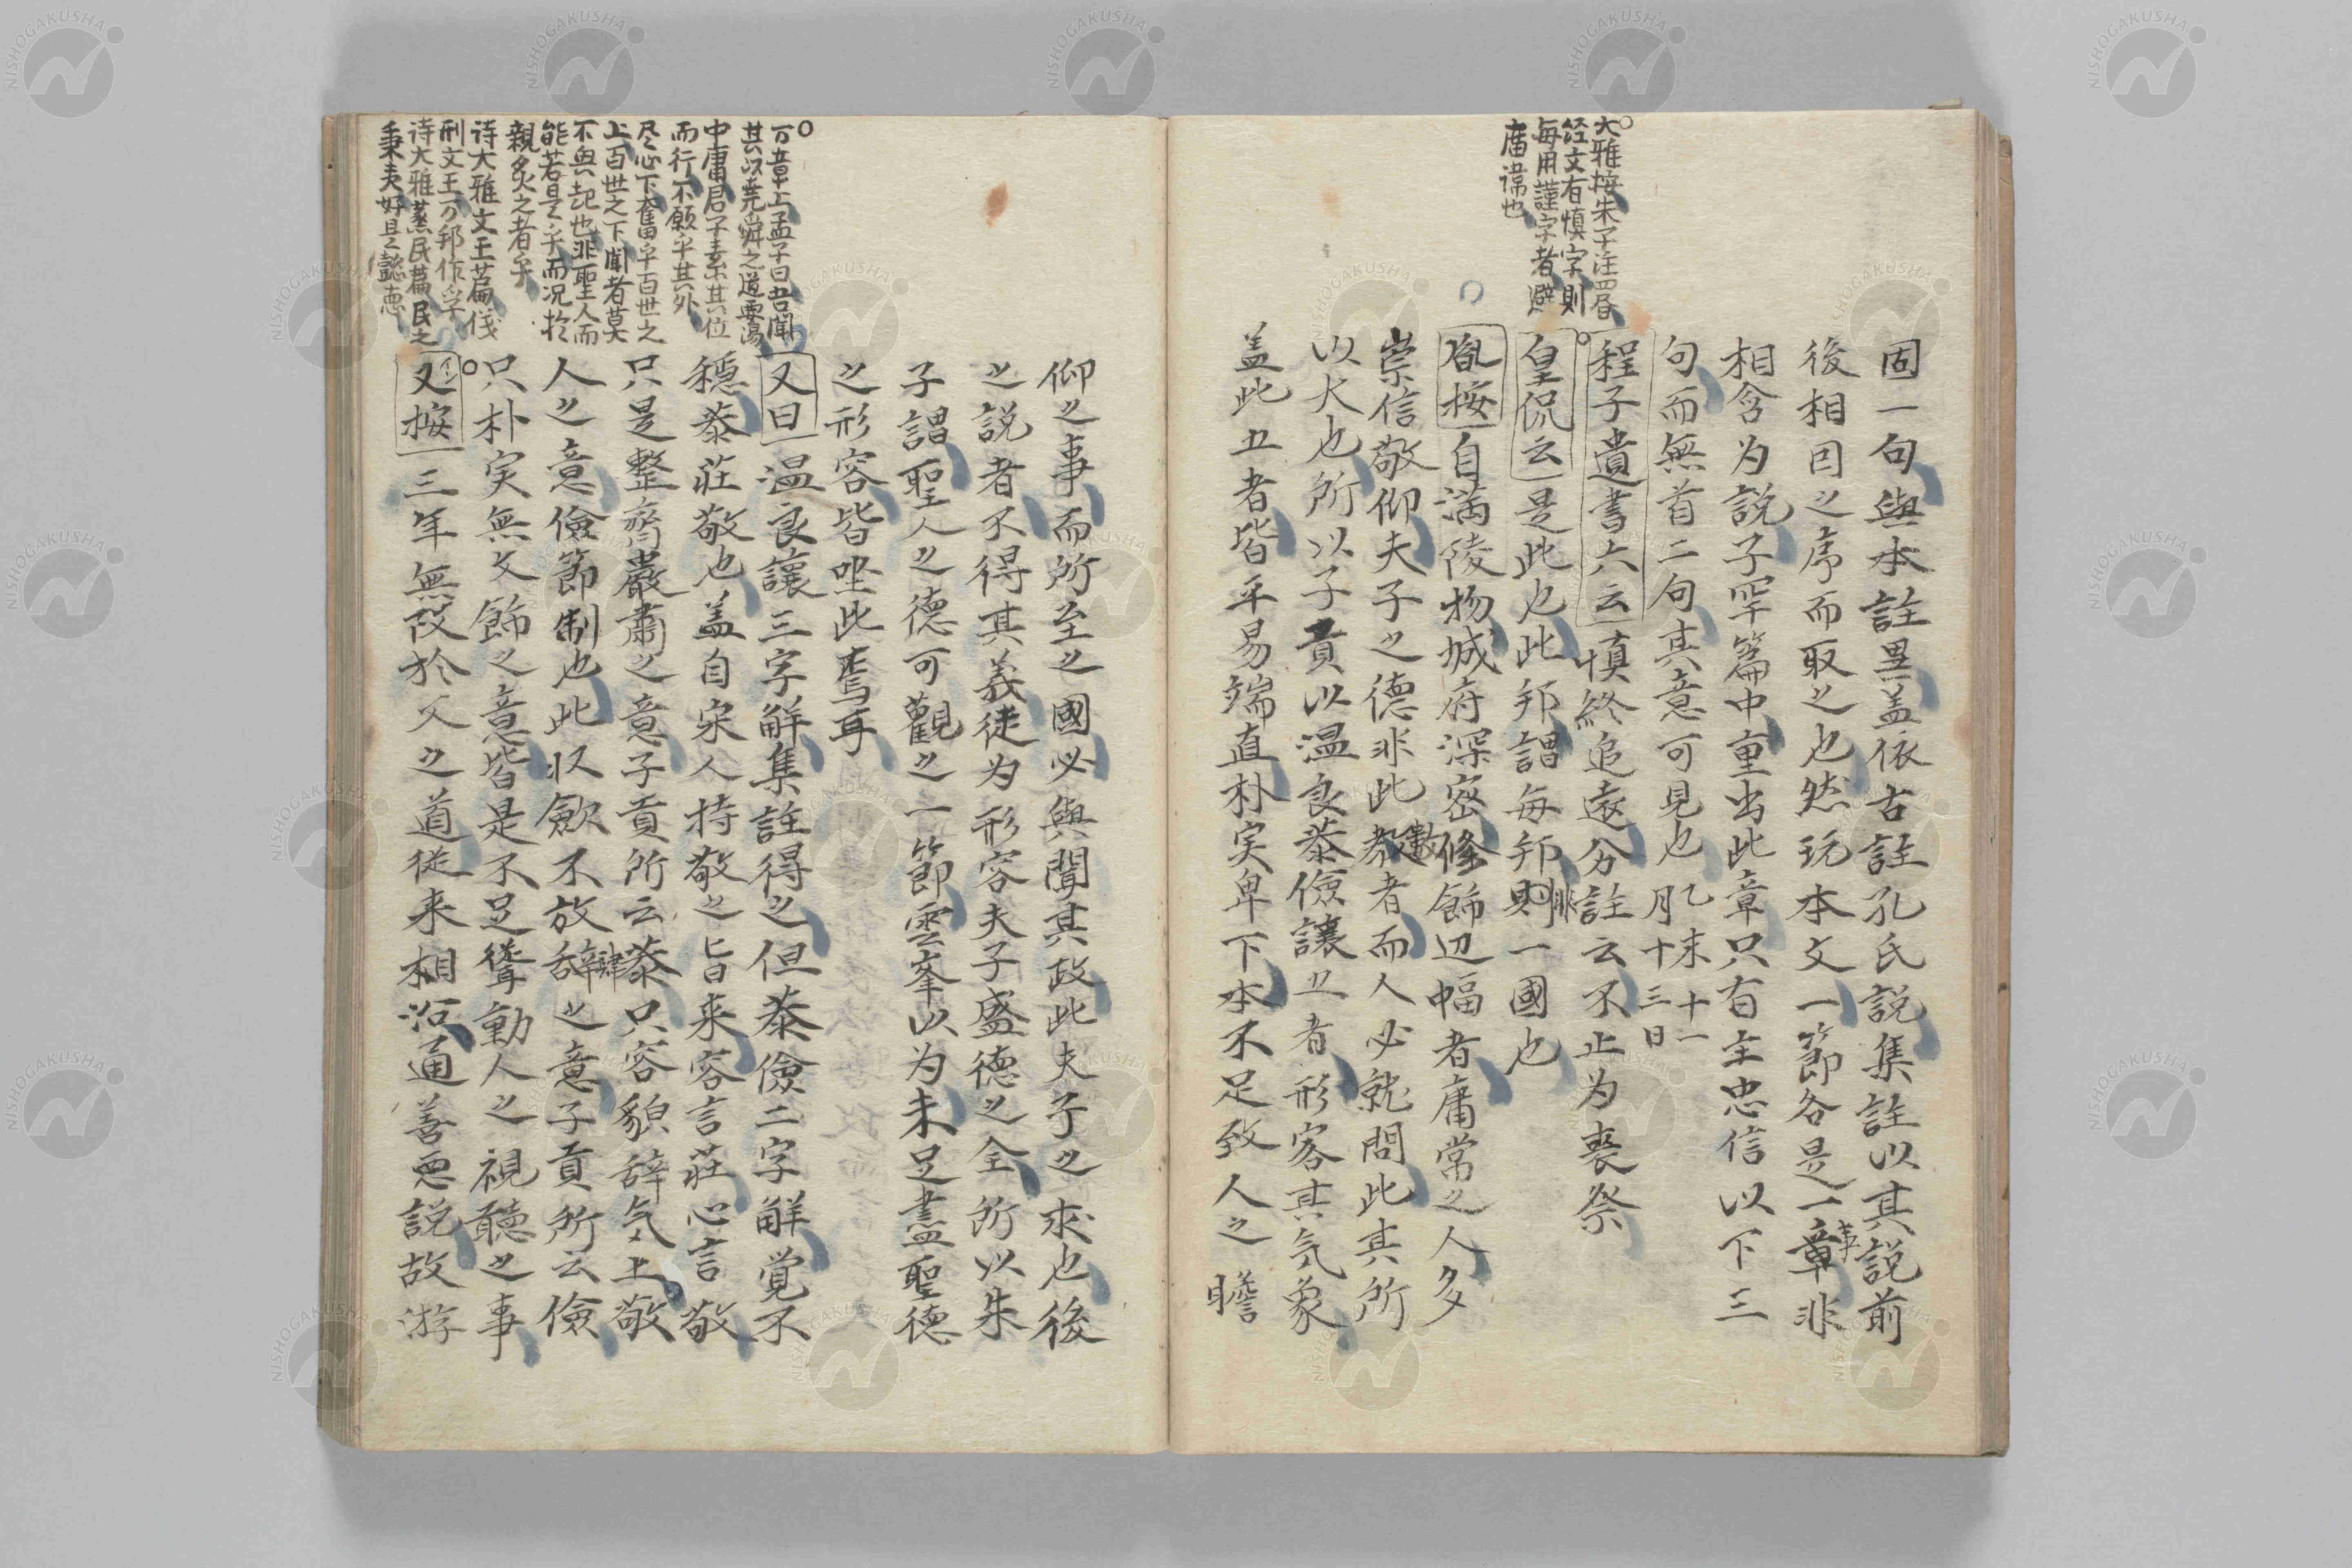 大雅按朱子注四書
経文有慎字則
毎用謹字者避
庿諱也
固一句與本註異盖依古註孔氏説集註以其説前
後相因之序而取之也然玩本文一節各是一章事非
相含为説子罕篇中重出此章只有主忠信以下三
句而無首二句其意可見也 乙未十一
月十三日
程子遺書六云慎終追遠分註云不止为喪祭
皇侃云是此也此邦謂毎邦非則一國也
胤按自満陵物城府深密修餙辺幅者庸常之人多
崇信敬仰夫子之德非此數者而人必就問此其所
以大也所以子貢以温良恭儉讓五者形容其气象
盖此五者皆平易端直朴実卑下本不足致人之瞻
万章上孟子曰吾聞
其以尭舜之道要湯
中庸君子素其位
而行不願乎其外
尽心下奮乎百世之
上百世之下聞者莫
不興起也非聖人而
能若是乎而况於
親炙之者乎
诗大雅文王萹儀
刑文王万邦作孚
诗大雅蒸民萹民之
秉夷好是懿徳
仰之事而所至之國必與聞其政此夫子之求也後
之説者不得其義徒为形容夫子盛德之全所以朱
子謂聖人之德可觀之一節雲峯以为未足盡聖德
之形容皆坐此焉耳
又曰温良讓三字解集註得之但恭儉二字解覚不
穏恭荘敬也盖自宋人持敬之旨来容言荘心言敬
只是整齊嚴肅之意子貢所云恭只容貌辞气上敬
人之意儉節制也此収歛不放肆之意子貢所云儉
只朴実無文餙之意皆是不足聳動人之視聽之事
又按三年無改於父之道従来相沿通善悪説故游